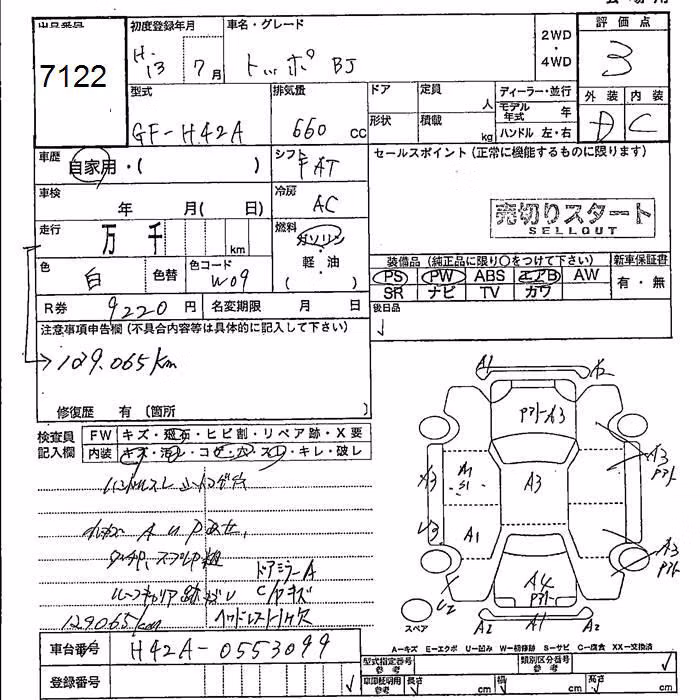 7122
初度登録年月
H.13 7月
車名・グレード
トッポ BJ
2WD
・
4WD
評価点
3
外装 内装
D C
型式
GF-H42A
排気量
660 cc
ドア
定員
人
形状
積載
kg
ディーラー・並行
モデル年式 年
ハンドル 左・右
車歴
自家用・( )
シフト
FAT
セールスポイント (正常に機能するものに限ります)
売切りスタート
SELLOUT
車検
年 月( 日)
冷房
AC
走行
万 千 km
燃料
ガソリン
軽・油
( )
色
白
色替
色コード
W09
装備品 (純正品に限り○をつけて下さい)
PS PW ABS エアB AW
SR ナビ TV カワ
新車保証書
有・無
R券
9220 円
名変期限 月 日
後日品
注意事項申告欄 (不具合内容等は具体的に記入して下さい)
129.065km
修復歴 有 (箇所
検査員記入欄
FW キズ・飛石・ヒビ割・リペア跡・X要
内装 キズ・汚レ・コゲ・穴・スレ・キレ・破レ
ハンドルスレ
ドアミラーA
ルーフキャリア跡
129065km
車台番号
H42A-0553099
登録番号
A1
A2
アト-A3
A3
A3
アト
A3
A1
S1
U3
A1
A3
アト
A4
アト
U2
スペア
A2
A1
A2
A-キズ E-エクボ U-凹み W-補修跡 S-サビ C-腐食 XX-交換済
型式指定番号 参考
類別区分番号 参考
車庫証明用 参考
長さ cm
幅 cm
高さ cm